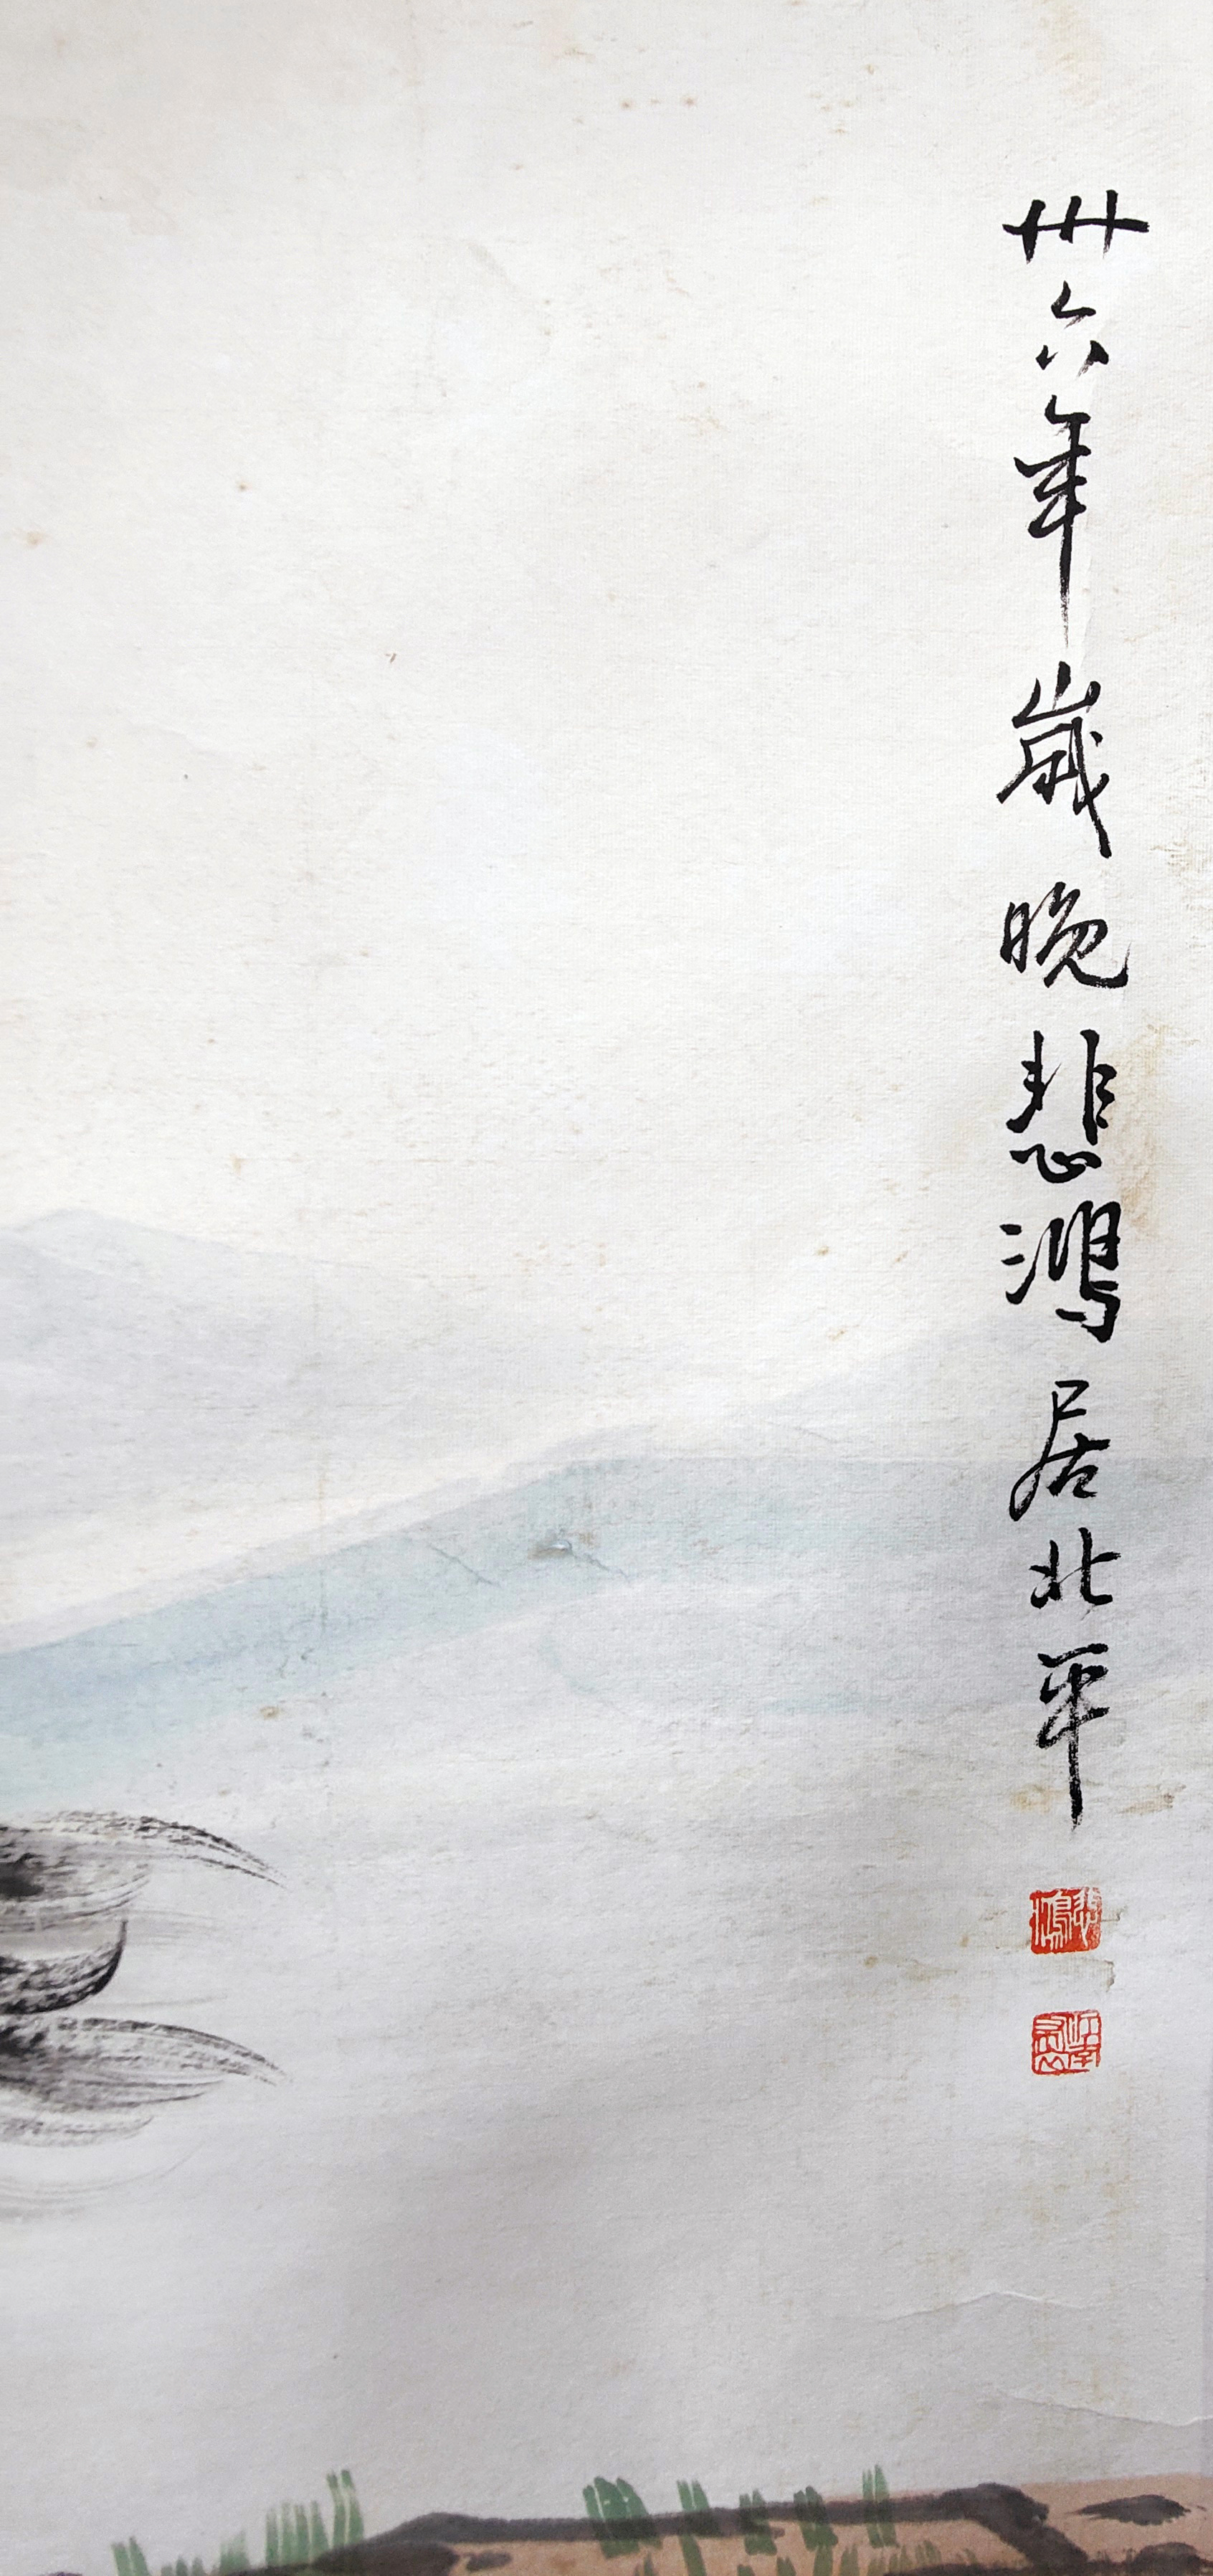 卅六年歲晚悲鴻居北平
悲鴻